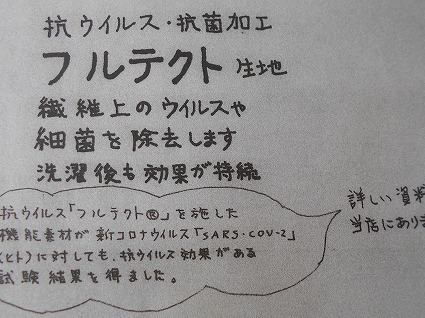 抗ウイルス・抗菌加工
フルテクト生地
繊維上のウイルスや
細菌を除去します
洗濯後も効果が持続
抗ウイルス「フルテクト®」を施した
機能素材が新コロナウイルス「SARS-COV-2」
(ヒト)に対しても、抗ウイルス効果がある
試験結果を得ました。
詳しい資料
当店にありま